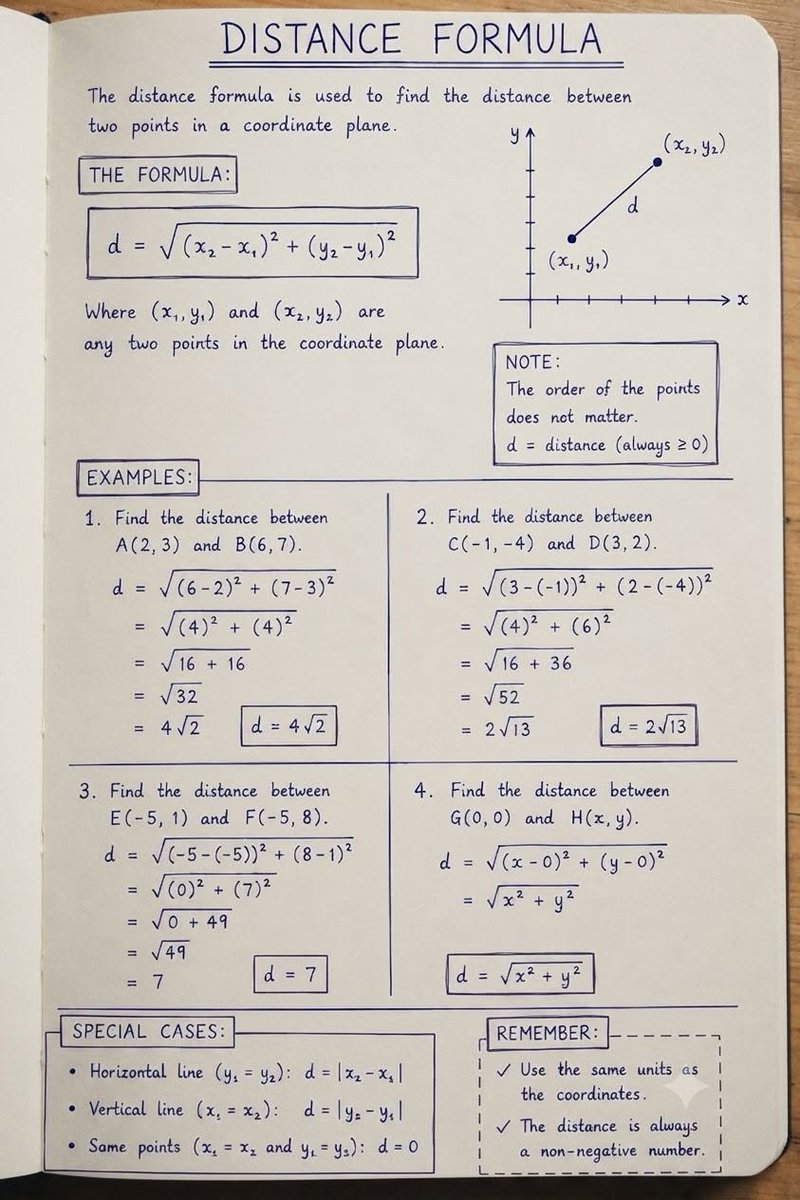 DISTANCE FORMULA
The distance formula is used to find the distance between
two points in a coordinate plane.
THE FORMULA:
d = √(x₂ - x₁)² + (y₂ - y₁)²
Where (x₁, y₁) and (x₂, y₂) are
any two points in the coordinate plane.
y
(x₂, y₂)
d
(x₁, y₁)
x
NOTE:
The order of the points
does not matter.
d = distance (always ≥ 0)
EXAMPLES:
1. Find the distance between
A(2, 3) and B(6, 7).
d = √(6-2)² + (7-3)²
= √(4)² + (4)²
= √16 + 16
= √32
= 4√2
d = 4√2
2. Find the distance between
C(-1, -4) and D(3, 2).
d = √(3-(-1))² + (2-(-4))²
= √(4)² + (6)²
= √16 + 36
= √52
= 2√13
d = 2√13
3. Find the distance between
E(-5, 1) and F(-5, 8).
d = √(-5-(-5))² + (8-1)²
= √(0)² + (7)²
= √0 + 49
= √49
= 7
d = 7
4. Find the distance between
G(0, 0) and H(x, y).
d = √(x - 0)² + (y - 0)²
= √x² + y²
d = √x² + y²
SPECIAL CASES:
• Horizontal line (y₁ = y₂): d = |x₂ - x₁|
• Vertical line (x₁ = x₂): d = |y₂ - y₁|
• Same points (x₁ = x₂ and y₁ = y₂): d = 0
REMEMBER:
✓ Use the same units as
the coordinates.
✓ The distance is always
a non-negative number.